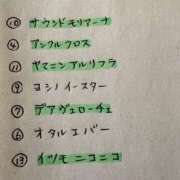 ⑩ サウンドモリアーナ
④ アンクルクロス
⑪ ヤマニンアルリフラ
⑨ ヨシノイースター
⑦ デアヴェローチェ
⑥ オタルエバー
⑬ イツモニコニコ